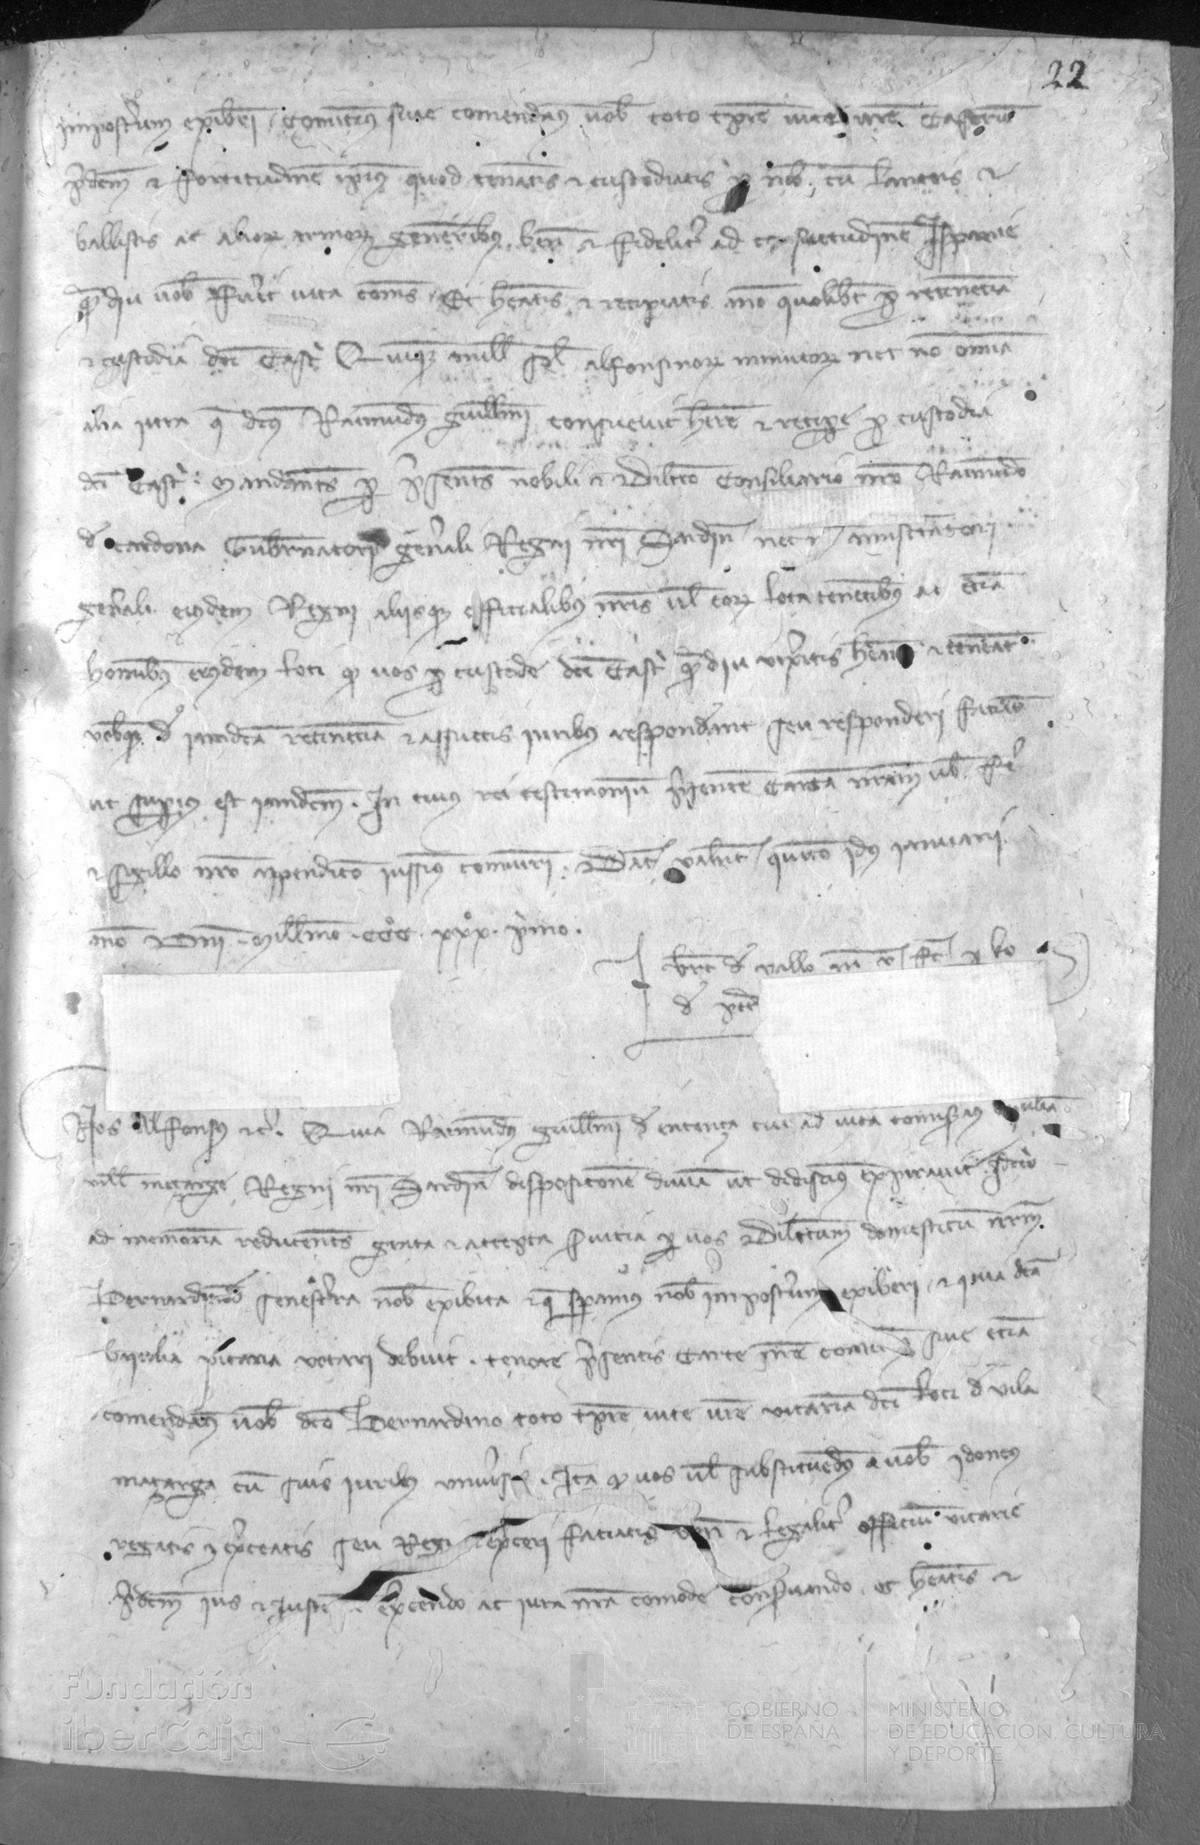 22
imposterum exiberi comittimus sive comendamus vobis toto tempore vite vestre Castrum
predictum et fortitudinem ipsius quod teneatis et custodiatis pro nobis cum lanceis et
ballistis ac aliorum armorum generibus bene et fideliter ad consuetudinem Ispanie
quamdiu vobis fuerit vita comes Et habeatis et recipiatis anno quolibet pro retenencia
et custodia dicti Castri Quinque mille solidos alfonsinorum minutorum nec non omnia
alia jura que dictus Raimundus Guillelmi consuevit habere et recipere pro custodia
dicti Castri Mandantes per presentes nobili et Dilecto Consiliario nostro Raimundo
de Cardona Gubernatori generali Regni nostri Sardinie nec non aministratori
generali eiusdem Regni aliisque officialibus nostris vel eorum locatenentibus ac etiam
hominibus eiusdem loci quod vos pro custode dicti Castri quamdiu vixeritis habeant et teneant
vobisque de iamdicta retenencia et assuetis iuribus respondeant seu responderi faciant
ut superius est iamdictum. In cuius rei testimonium presentem Cartam nostram vobis fieri
et sigillo nostro apendicio iussimus comuniri. Data Valencie quinto idus januarii
anno Domini Millesimo CCC XXX primo.
de vallo
de
Nos Alfonsus etc. Quia Raimundus Guillelmi de entença cui ad vita comiseramus baiuliam
ville Regni nostri Sardinie disposicione divina ut didiscimus expiravit Idcirco
ad memoriam reducentes grata et accepta servicia per vos Dilectum domesticum nostrum
Bernardinum senesterra nobis exibita et que speramus nobis impostum exiberi et quia dicta
baiulia vicaria vocari debuit. tenore presentis Carte nostre comittimus sive etiam
comendamus vobis dicto Bernardino toto tempore vite vestre vicariam dicti loci de vila
matarga cum suis iuribus universis. Ita quod vos vel substituendus a vobis idoneus
regatis et exerceatis seu Regi et exerceri faciatis bene et legaliter officium vicarie
predictum ius et iusticiam exercendo ac iura nostra comode conservando et habeatis et
Fundación
iberCaja
GOBIERNO
DE ESPAÑA
MINISTERIO
DE EDUCACIÓN, CULTURA
Y DEPORTE